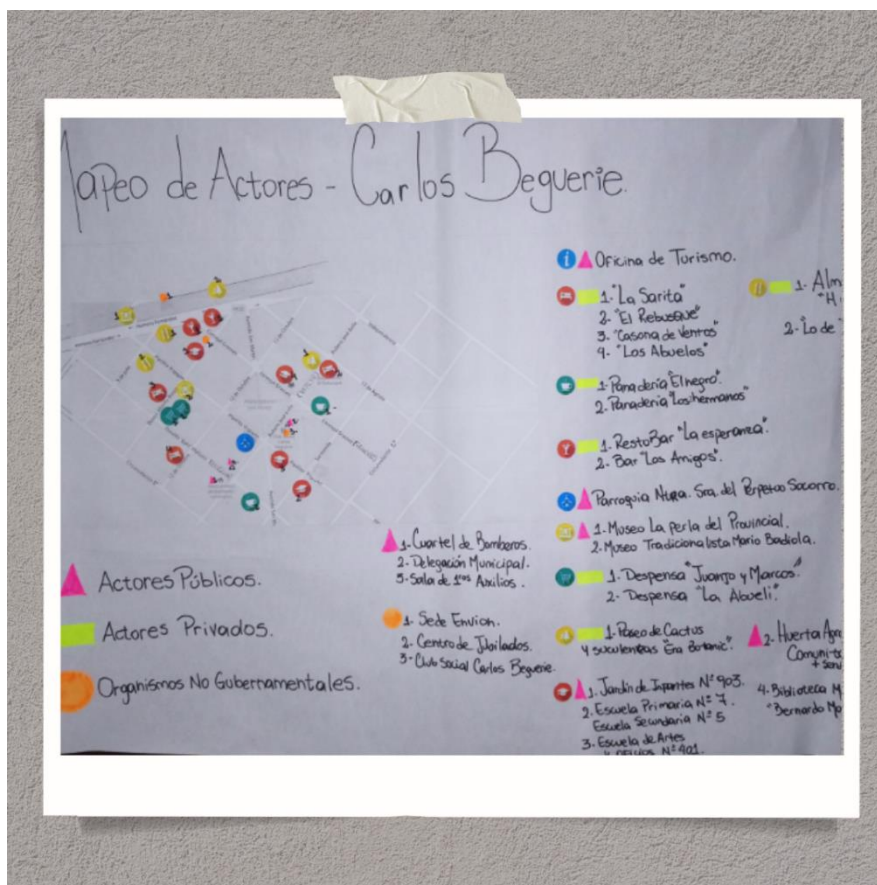 Mapeo de Actores - Carlos Beguerie.
Oficina de Turismo.
1. "La Sarita"
2. "El Rebusque"
3. "Casona de Ventos"
4. "Los Abuelos"
1. Alm
2. Lo de
1. Panadería "El negro".
2. Panadería "Los hermanos"
1. RestoBar "La esperanza".
2. Bar "Los Amigos".
Parroquia Ntra. Sra. del Perpetuo Socorro.
1. Museo La perla del Provincial.
2. Museo Tradicionalista Mario Badiola.
1. Despensa "Juanjo y Marcos".
2. Despensa "La Abueli".
1. Paseo de Cactus
y suculentas "Era Botanic".
2. Huerta Agr
Comunita
+ serv
1. Jardín de Infantes N° 903.
2. Escuela Primaria N° 7.
Escuela Secundaria N° 5
3. Escuela de Artes
y Oficios N° 401.
4. Biblioteca M
"Bernardo Mo
1. Cuartel de Bomberos.
2. Delegación Municipal.
3. Sala de 1ros Auxilios.
1. Sede Envion.
2. Centro de Jubilados.
3. Club Social Carlos Beguerie.
Actores Públicos.
Actores Privados.
Organismos No Gubernamentales.